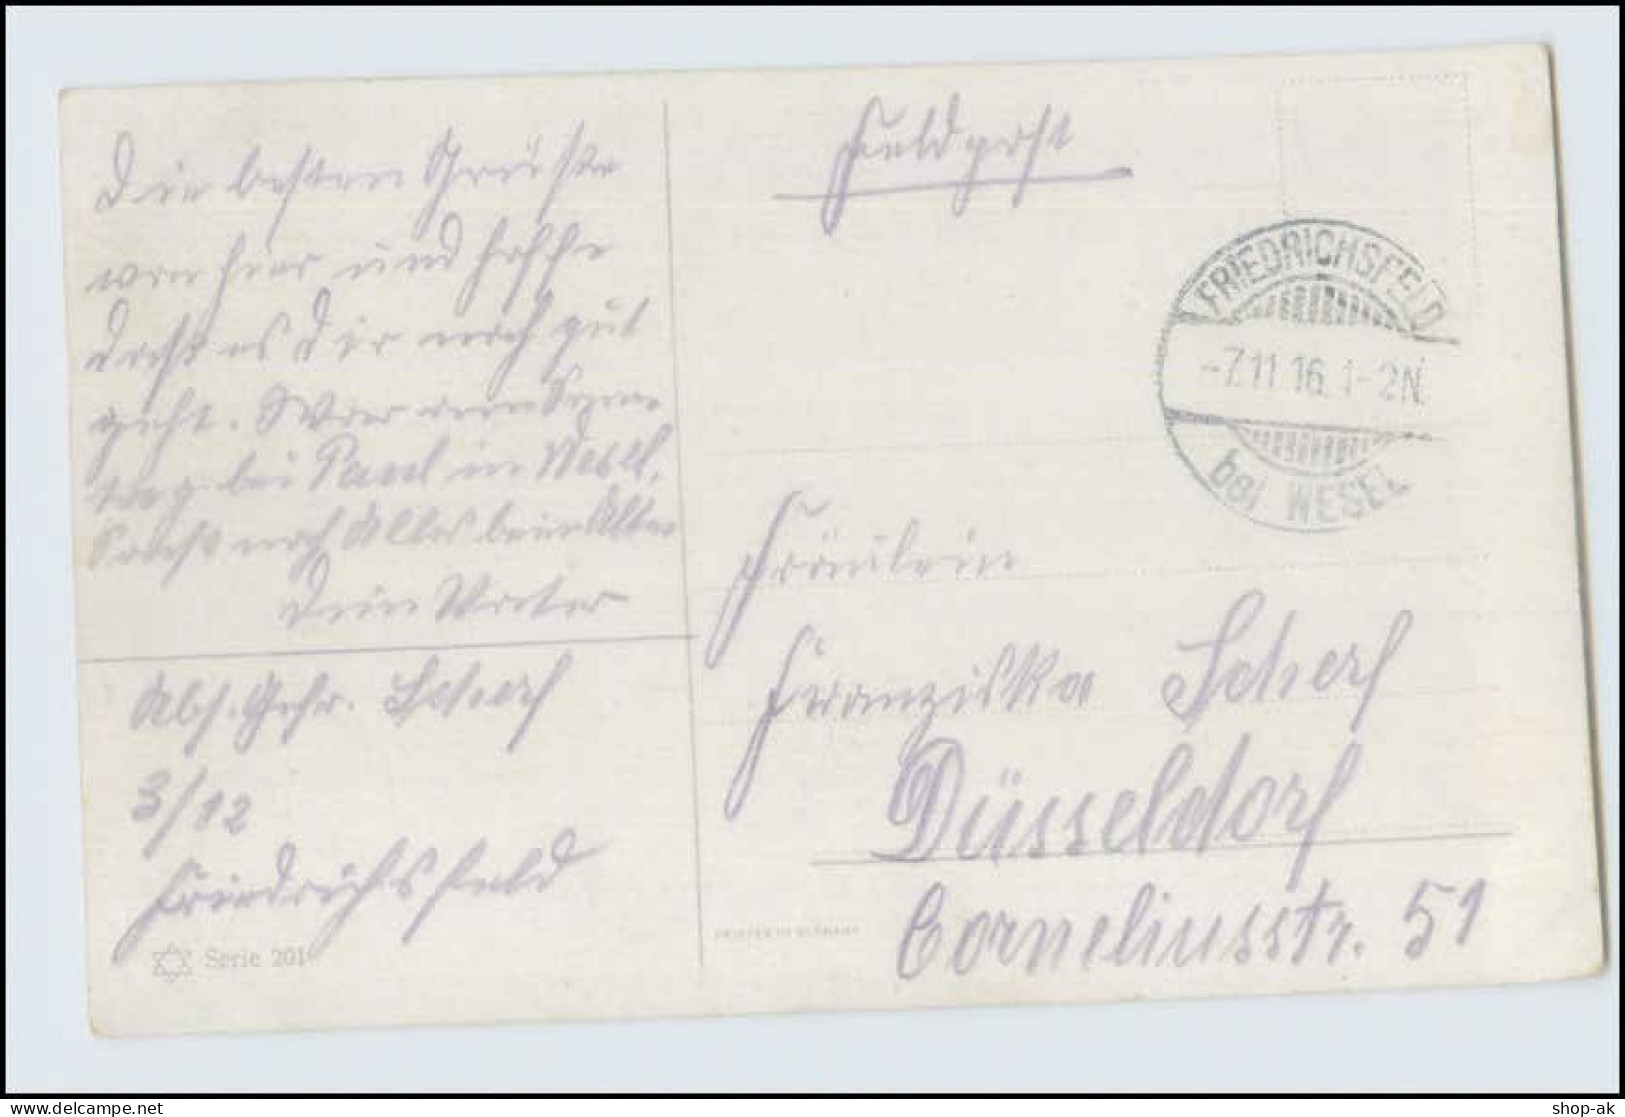 Die besten Grüße
von hier und hoffe
daß es Dir noch gut
geht. War am Sonn
tag bei Paul in Wesel.
noch Alles beim Alten
Dein Vater
Abs. Gefr. Scherf
3/12
Friedrichsfeld
Serie 201
Feldpost
FRIEDRICHSFELD
-7.11.16. 1-2N.
bei WESEL
Fräulein
Franziska Scherf
Düsseldorf
Corneliusstr. 51
PRINTED IN GERMANY
shop-ak
delcampe.net